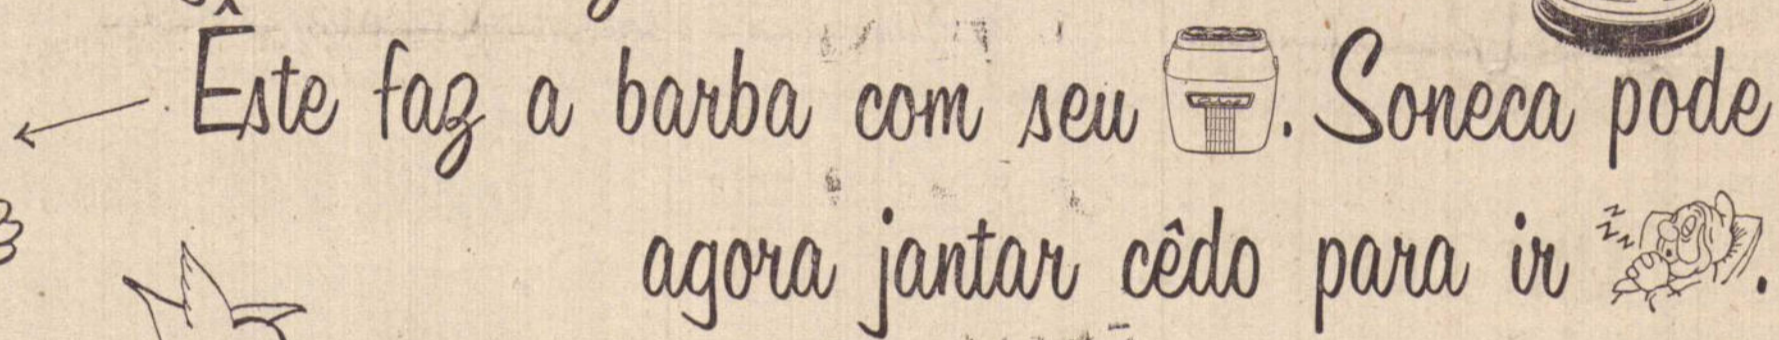 Êste faz a barba com seu . Soneca pode
agora jantar cêdo para ir .